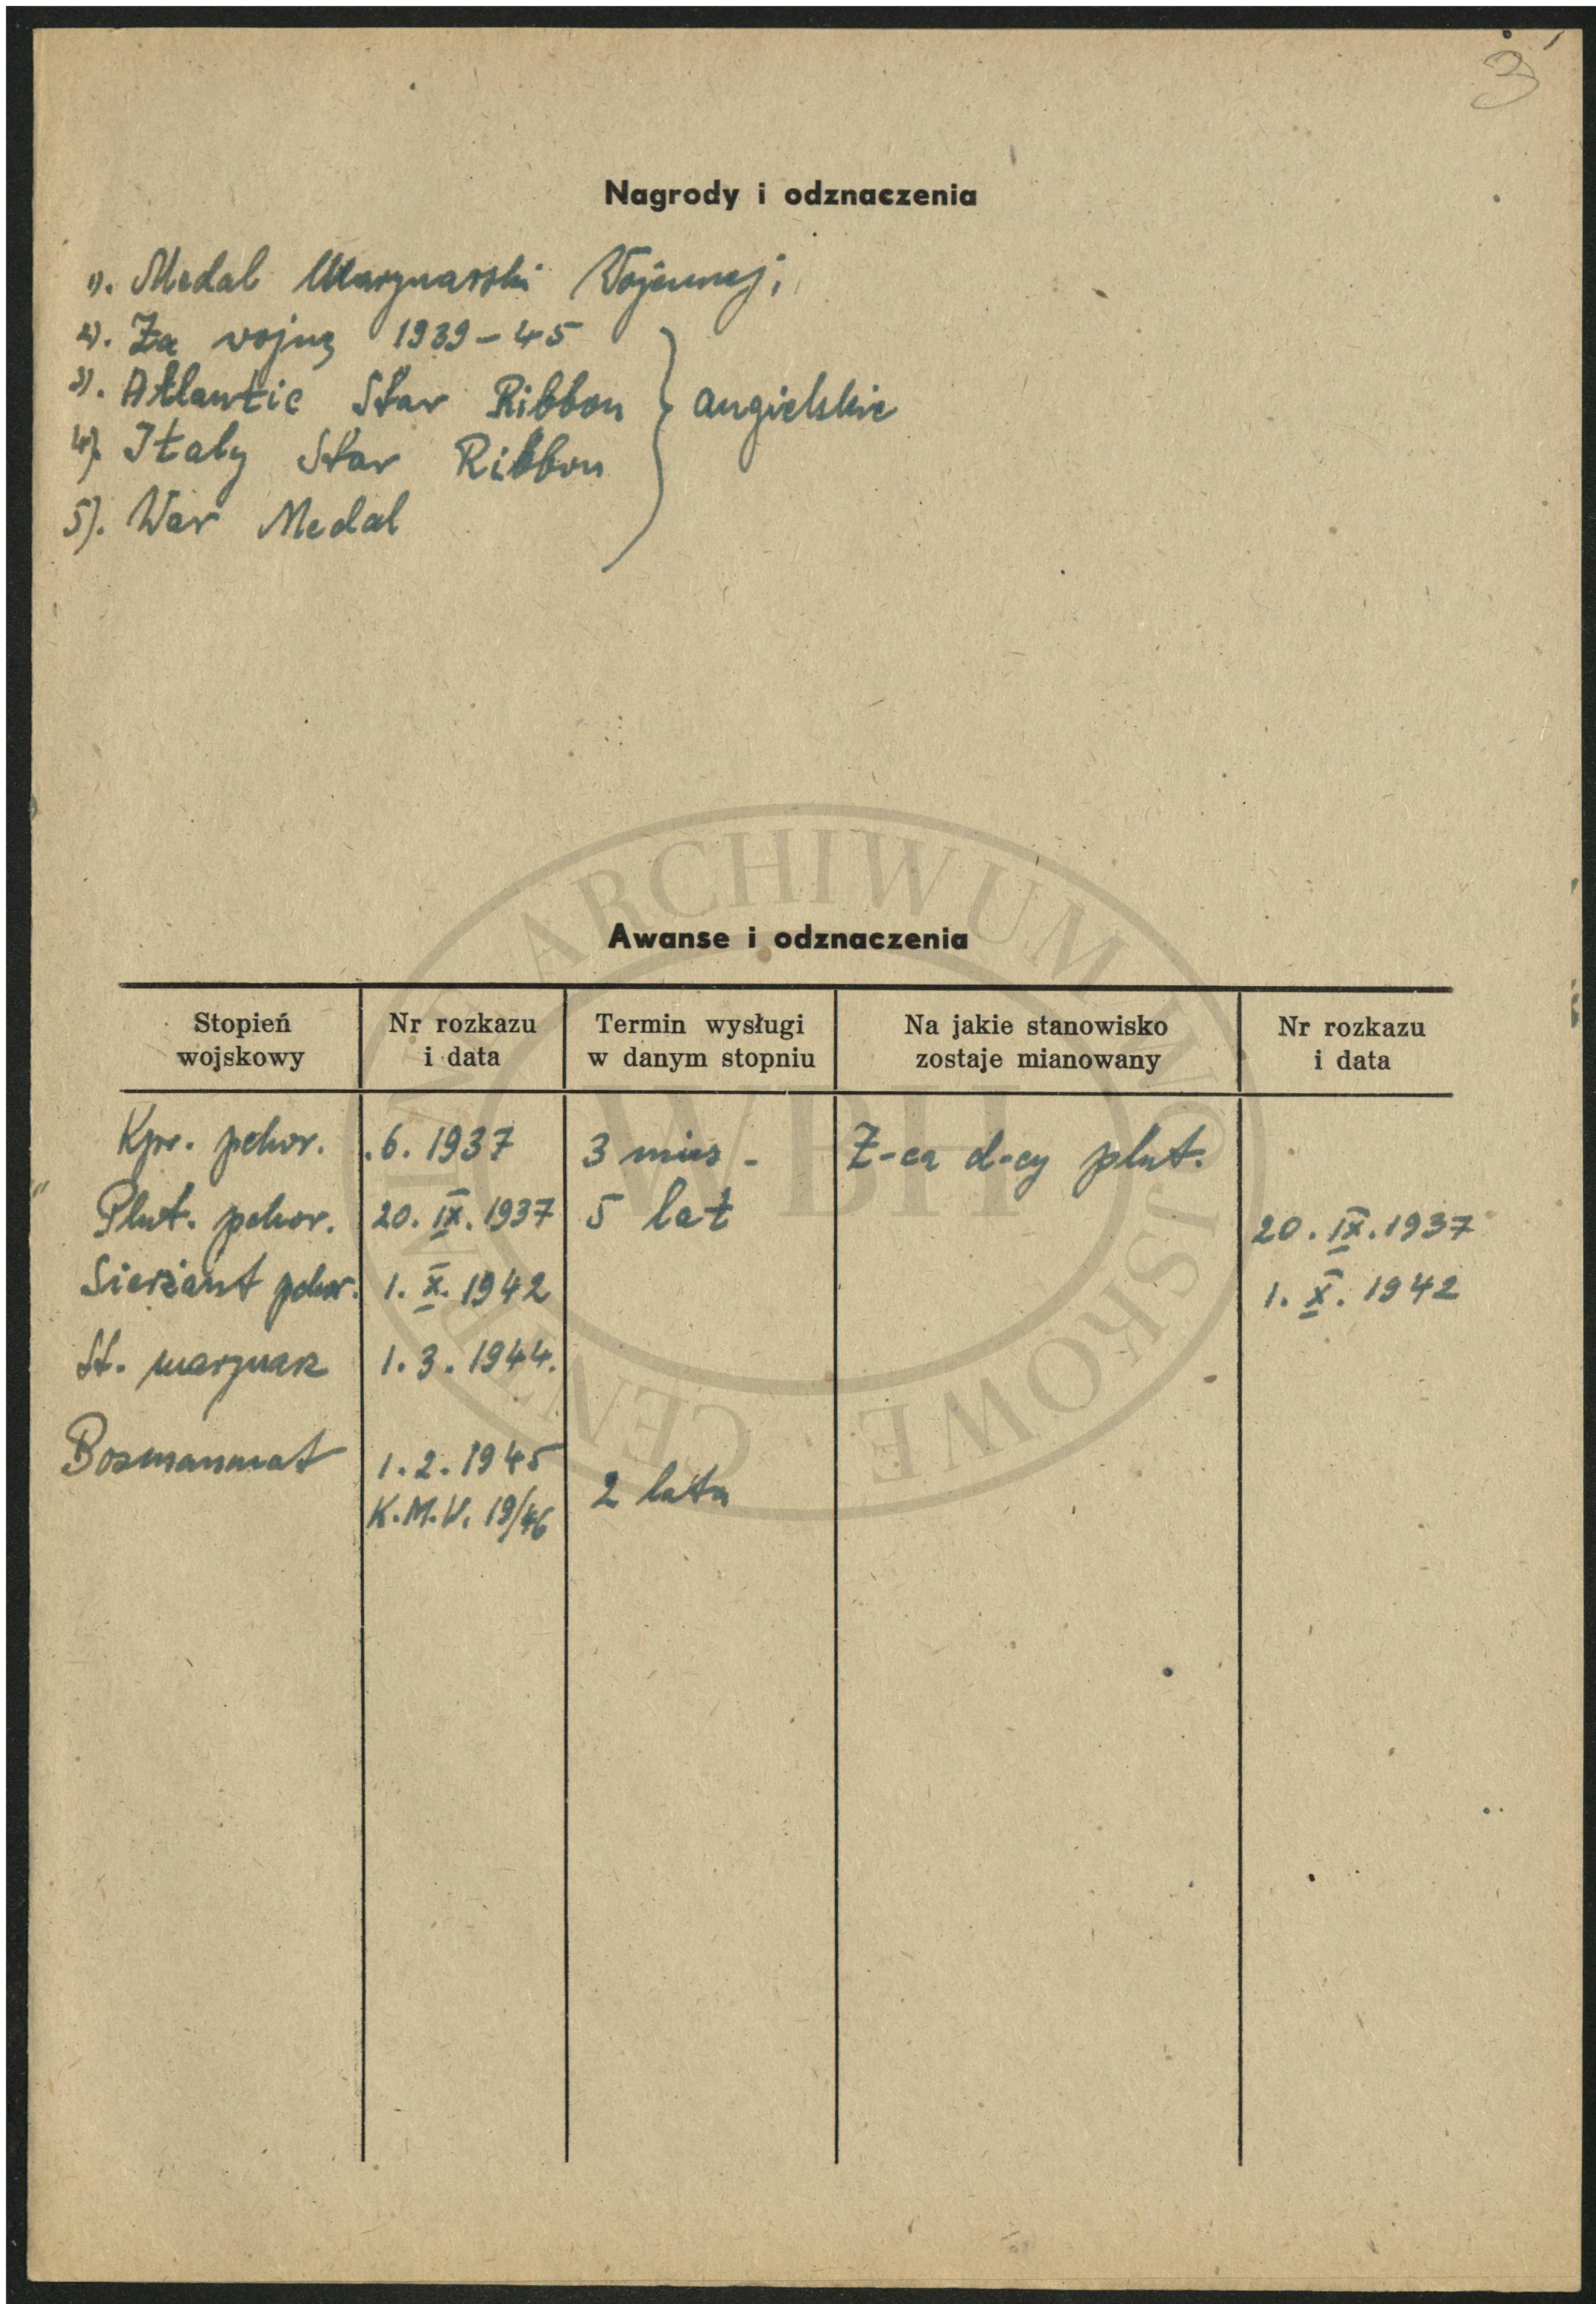 3
Nagrody i odznaczenia
1). Medal Marynarski Wojennej;
2). Za wojnę 1939-45
3). Atlantic Star Ribbon
angielskie
4). Italy Star Ribbon
5). War Medal
Awanse i odznaczenia
Stopień wojskowy | Nr rozkazu i data | Termin wysługi w danym stopniu | Na jakie stanowisko zostaje mianowany | Nr rozkazu i data
Kpr. pchor. .6. 1937 3 mies - Z-ca d-cy plut.
Plut. pchor. 20. IX. 1937 5 lat 20. IX. 1937
Sierżant pchor. 1. X. 1942 1. X. 1942
St. marynarz 1. 3. 1944.
Bosmanmat 1. 2. 1945
K.M.W. 19/46 2 lata
CENTRALNE ARCHIWUM WOJSKOWE
WBH